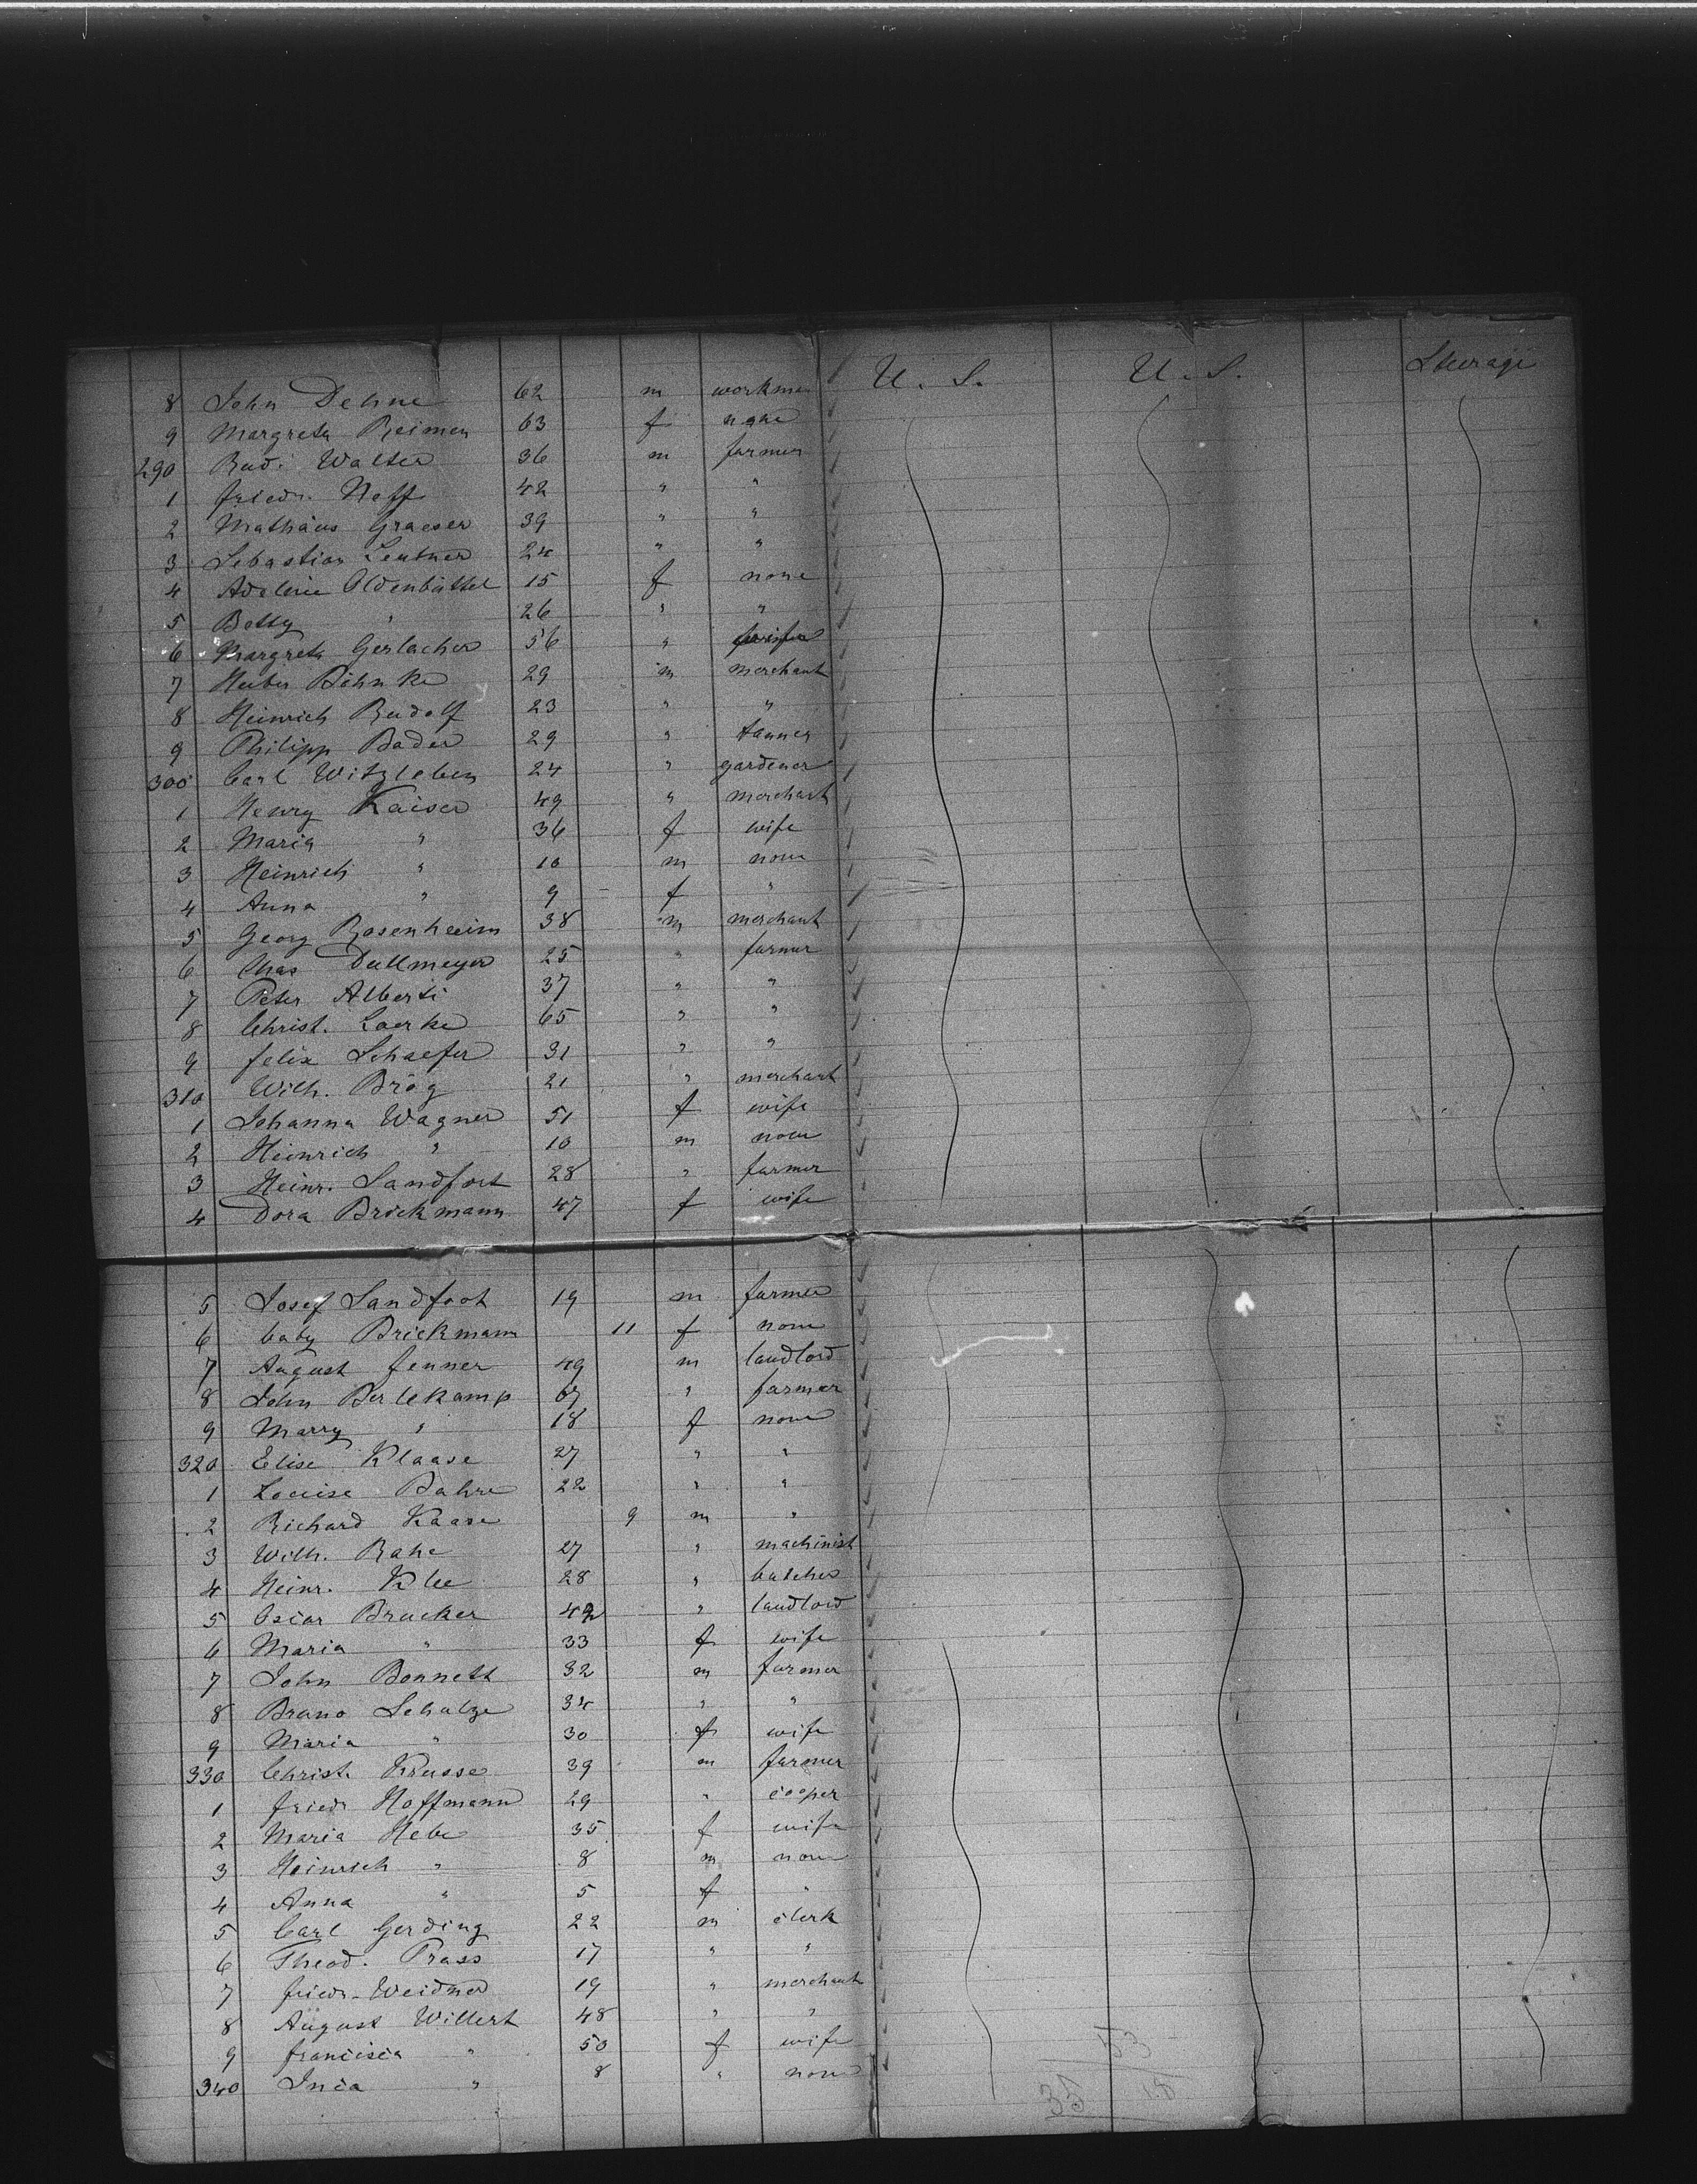 8 John Dehne 62 m workman U. S. U. S. Steerage
9 Margreth Reimen 63 f none
290 Rud. Walter 36 m farmer
1 Friedr. Neff 42 " "
2 Mathäus Graeser 39 " "
3 Sebastian Leutner 24 " "
4 Adeline Oldenbüttel 15 f none
5 Betty " 26 " "
6 Margreth Gerlacher 56 "
7 Behnke 29 m merchant
8 Heinrich Rudolf 23 " "
9 Philipp Bader 29 " tanner
300 Carl Witzleben 24 " gardener
1 Henry Kaiser 49 " merchant
2 Maria " 36 f wife
3 Heinrich " 10 m none
4 Anna " 9 f "
5 Georg Rosenheim 38 m merchant
6 Chas Dallmeyer 25 " farmer
7 Peter Alberti 37 " "
8 Christ. Loerke 65 " "
9 Felix Schaefer 31 " "
310 Wilh. Brög 21 " merchant
1 Johanna Wagner 51 f wife
2 Heinrich " 10 m none
3 Heinr. Sandfort 28 " farmer
4 Dora Brickmann 47 f wife
5 Josef Sandfoot 19 m farmer
6 baby Brickmann 11 f none
7 August Fenner 49 m landlord
8 John Berlekamp 67 " farmer
9 Marry " 18 f none
320 Elise Klaase 27 " "
1 Louise Bahre 22 " "
2 Richard Kaase 9 m "
3 Wilh. Rahe 27 " machinist
4 Heinr. Klee 28 " butcher
5 Oscar Brucker 42 " landlord
6 Maria " 33 f wife
7 John Bonnett 32 m farmer
8 Bruno Schulze 34 " "
9 Maria " 30 f wife
330 Christ. Krusse 39 m farmer
1 Friedr Hoffmann 29 " cooper
2 Maria Hebe 35 f wife
3 Heinrich " 8 m none
4 Anna " 5 f "
5 Carl Gerding 22 m clerk
6 Theod. Prass 17 " "
7 Friedr. Weidner 19 " merchant
8 August Willert 48 " "
9 Francisca " 50 f wife
340 Inca " 8 " none
53
35 18